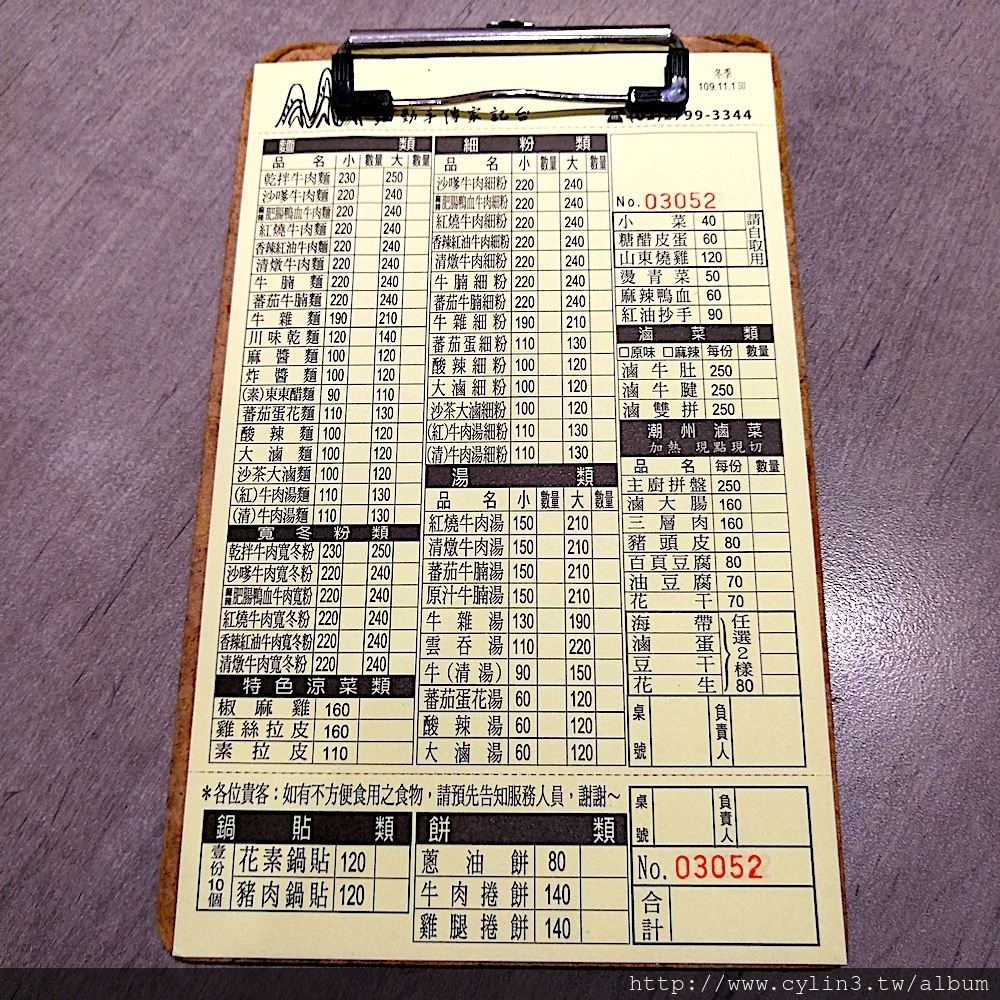 冬季
109.11.1
勤手陳家記台
799-3344
麵 類
品名 小 數量 大 數量
乾拌牛肉麵 230 250
沙嗲牛肉麵 220 240
麻辣肥腸鴨血牛肉麵 220 240
紅燒牛肉麵 220 240
香辣紅油牛肉麵 220 240
清燉牛肉麵 220 240
牛腩麵 220 240
蕃茄牛腩麵 220 240
牛雜麵 190 210
川味乾麵 120 140
麻醬麵 100 120
炸醬麵 100 120
(素)東東醋麵 90 110
蕃茄蛋花麵 110 130
酸辣麵 100 120
大滷麵 100 120
沙茶大滷麵 100 120
(紅)牛肉湯麵 110 130
(清)牛肉湯麵 110 130
寬冬粉類
乾拌牛肉寬冬粉 230 250
沙嗲牛肉寬冬粉 220 240
麻辣肥腸鴨血牛肉寬粉 220 240
紅燒牛肉寬冬粉 220 240
香辣紅油牛肉寬冬粉 220 240
清燉牛肉寬冬粉 220 240
特色涼菜類
椒麻雞 160
雞絲拉皮 160
素拉皮 110
細粉類
品名 小 數量 大 數量
沙嗲牛肉細粉 220 240
麻辣肥腸鴨血牛肉細粉 220 240
紅燒牛肉細粉 220 240
香辣紅油牛肉細粉 220 240
清燉牛肉細粉 220 240
牛腩細粉 220 240
蕃茄牛腩細粉 220 240
牛雜細粉 190 210
蕃茄蛋細粉 110 130
酸辣細粉 100 120
大滷細粉 100 120
沙茶大滷細粉 100 120
(紅)牛肉湯細粉 110 130
(清)牛肉湯細粉 110 130
湯類
品名 小 數量 大 數量
紅燒牛肉湯 150 210
清燉牛肉湯 150 210
蕃茄牛腩湯 150 210
原汁牛腩湯 150 210
牛雜湯 130 190
雲吞湯 110 220
牛(清湯) 90 150
蕃茄蛋花湯 60 120
酸辣湯 60 120
大滷湯 60 120
No. 03052
小菜 40
糖醋皮蛋 60
山東燒雞 120
請自取用
燙青菜 50
麻辣鴨血 60
紅油抄手 90
滷菜類
□原味 □麻辣 每份 數量
滷牛肚 250
滷牛腱 250
滷雙拼 250
潮州滷菜
加熱 現點現切
品名 每份 數量
主廚拼盤 250
滷大腸 160
三層肉 160
豬頭皮 80
百頁豆腐 80
油豆腐 70
花干 70
海帶
滷蛋
豆干
花生
任選2樣 80
桌號 負責人
*各位貴客：如有不方便食用之食物，請預先告知服務人員，謝謝～
鍋貼類
壹份10個
花素鍋貼 120
豬肉鍋貼 120
餅類
蔥油餅 80
牛肉捲餅 140
雞腿捲餅 140
桌號 負責人
No. 03052
合計
http://www.cylin3.tw/album